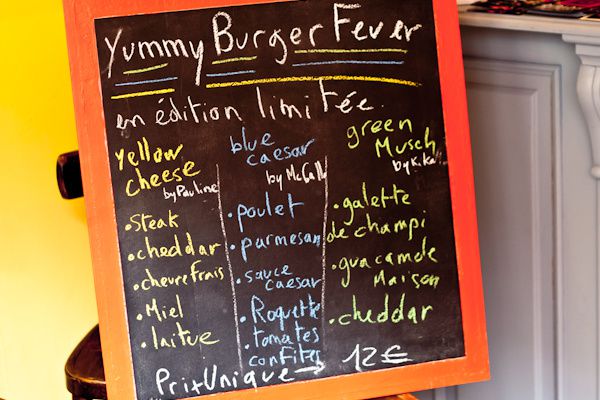 Yummy Burger Fever
en édition limitée.
yellow
cheese
by Pauline
• steak
• cheddar
• chevre frais
• Miel
• laitue
blue
caesar
by McCally
• poulet
• parmesan
• sauce
caesar
• Roquette
• tomates
confites
green
Musch
by K.
• galette
de champi
• guacamole
Maison
• cheddar
Prix Unique → 12€